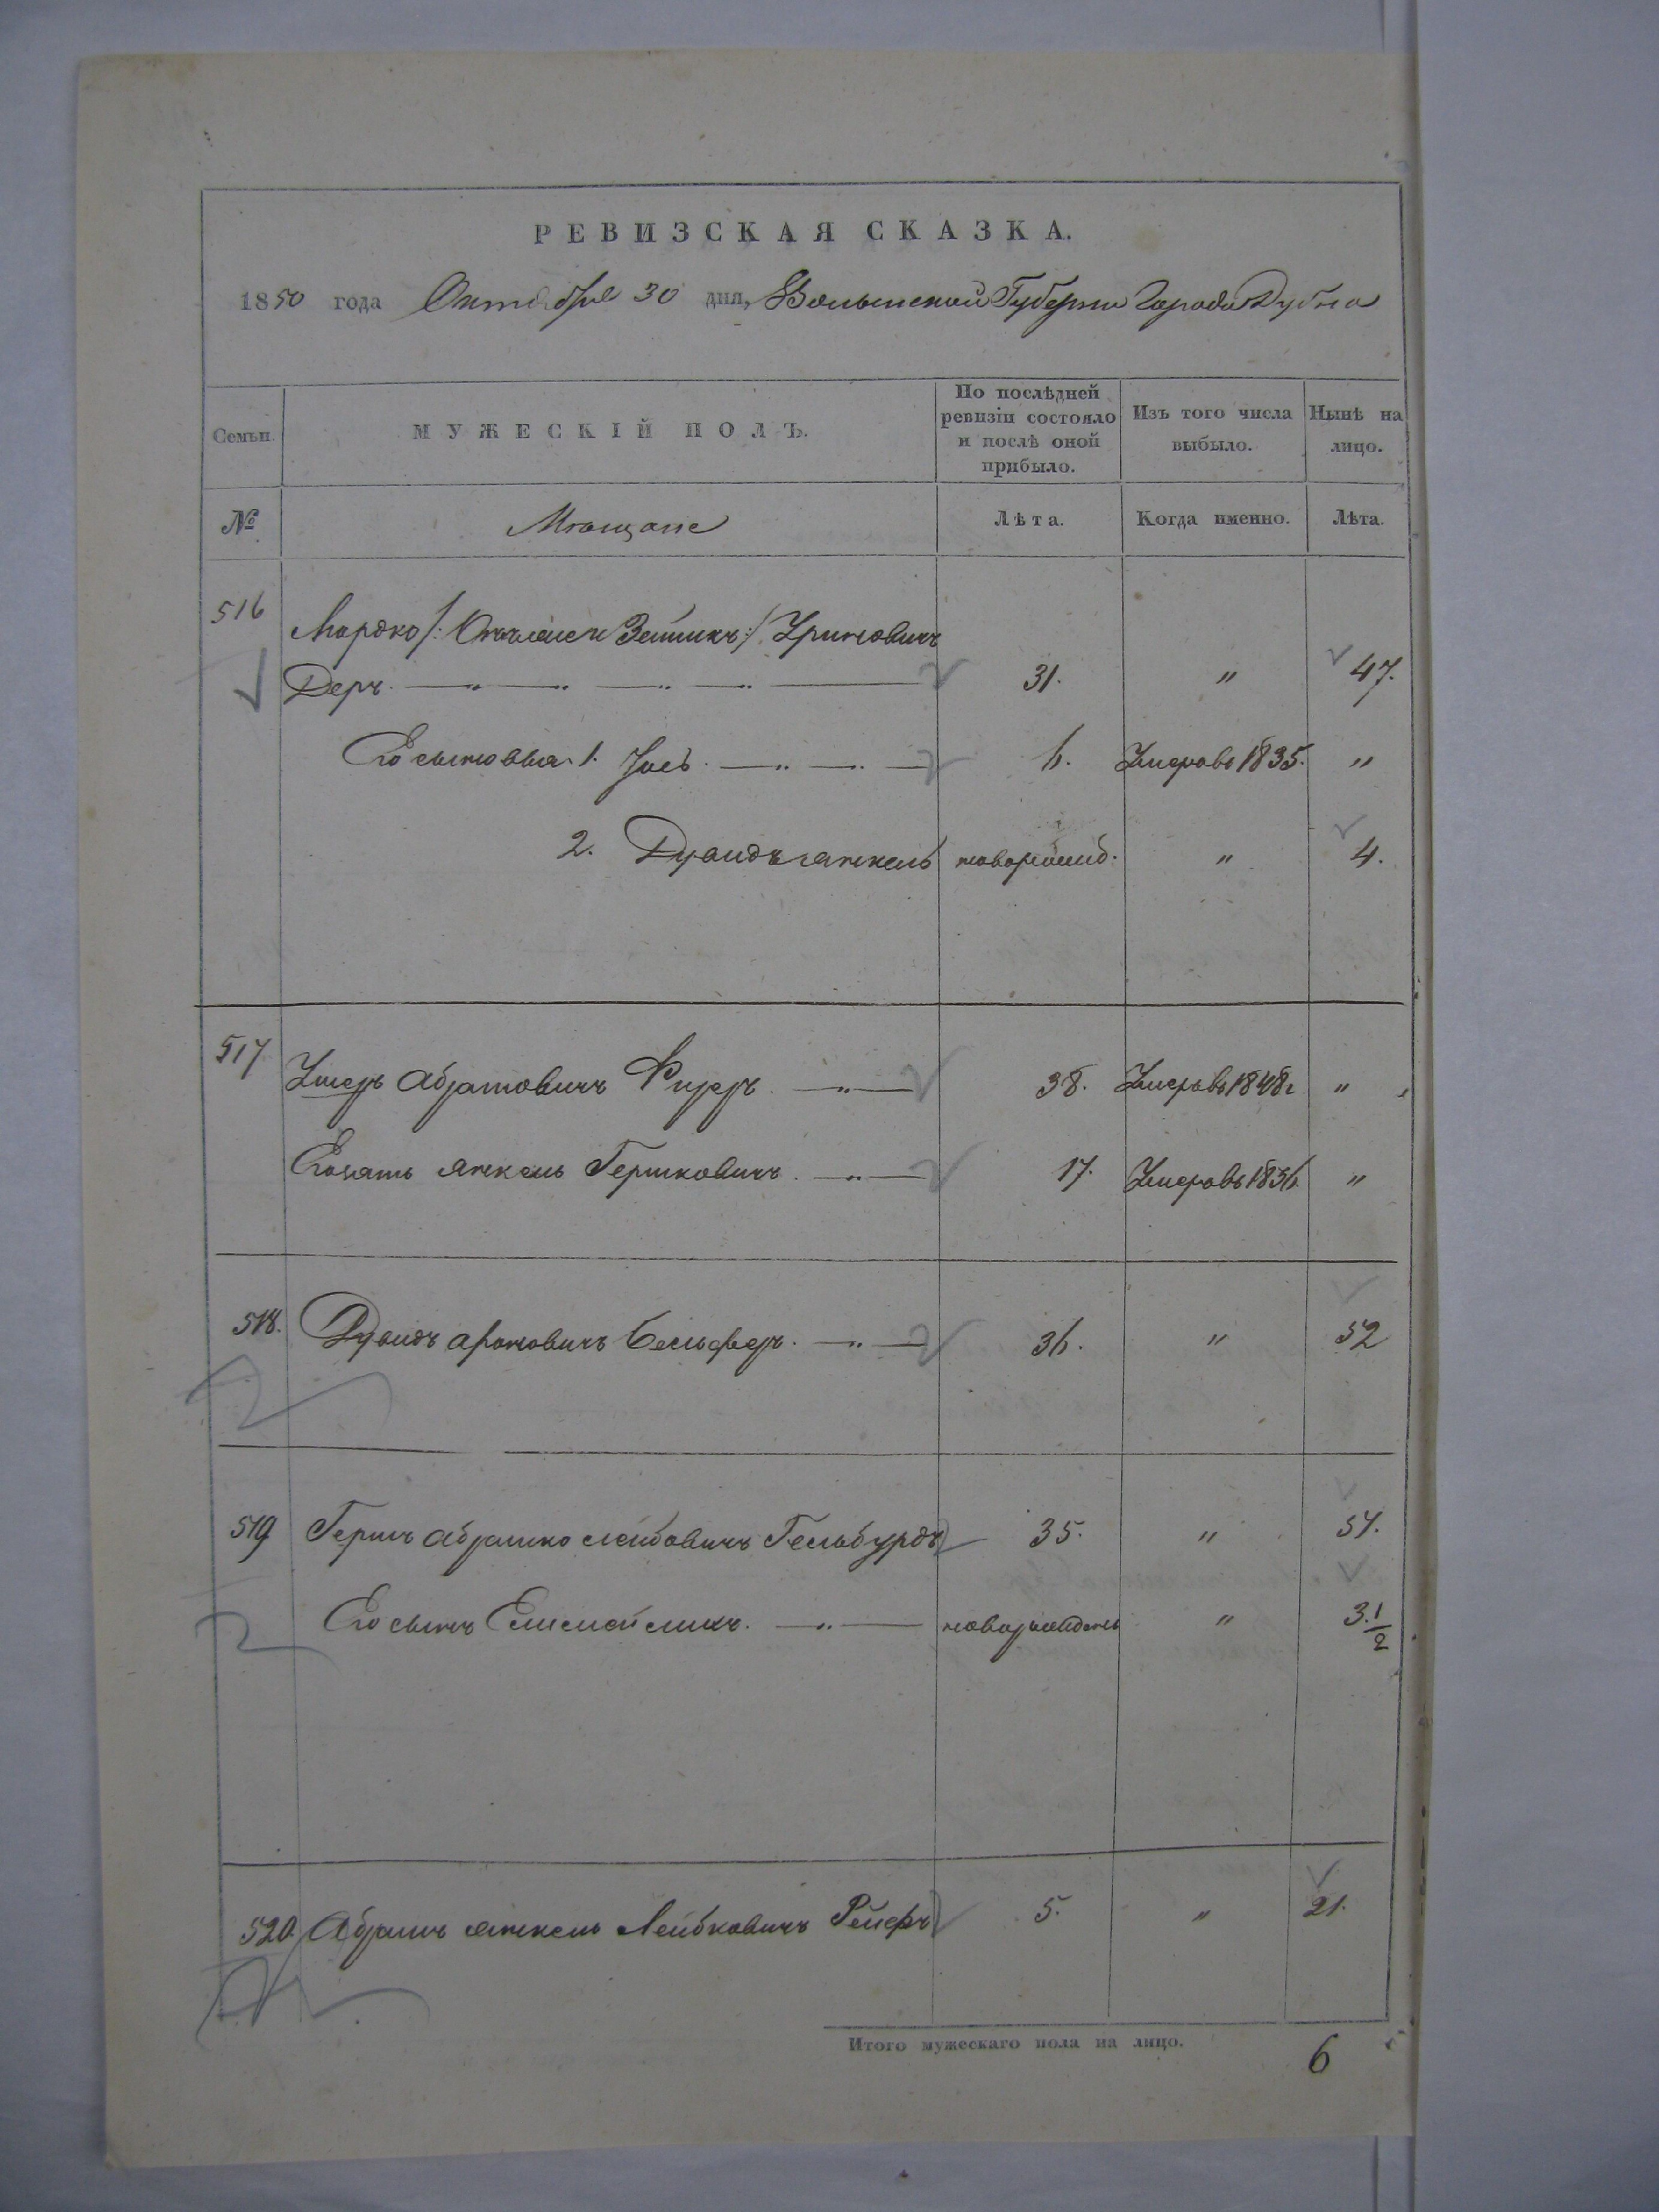 РЕВИЗСКАЯ СКАЗКА.
1850 года Октября 30 дня, Волынской Губернии Города Дубна
Семьи. МУЖЕСКІЙ ПОЛЪ. По послѣдней ревизіи состояло и послѣ оной прибыло. Изъ того числа выбыло. Нынѣ на лицо.
№ Мѣщане Лѣта. Когда именно. Лѣта.
516 Мордко /: :/
Деръ 31. " 47.
Его сыновья 1. Іось 6. Умеръ въ 1835. "
2. Дувидъ Янкель новорожд. " 4.
517 Ушеръ Абрамовичъ Фиреръ 38. Умеръ въ 1848 г "
Его зять Янкель Гершковичъ 17. Умеръ въ 1836. "
518. Дувидъ Ароновичъ 36. " 52
519 Гершъ Абрамко Лейбовичъ Гельбурдъ 35. " 51.
Его сынъ новорожденъ " 3. 1/2
520. Абрамъ Янкель Лейбковичъ Рейфъ 5. " 21.
Итого мужескаго пола на лицо. 6